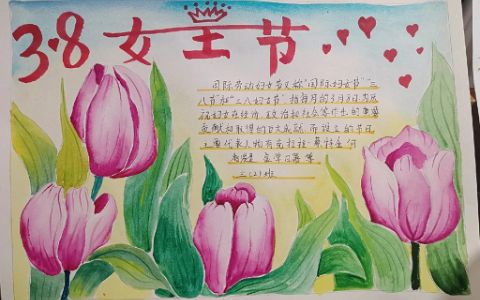 3·8女王节
国际劳动妇女节又称"国际妇女节""三
八节"和"三八妇女节".指每月的3月8日为庆
祝妇女在经济、政治和社会等作出的重要
贡献和取得的巨大成就而设立的节日
主要代表人物有克拉拉·蔡特金 何
香凝
三(2)班